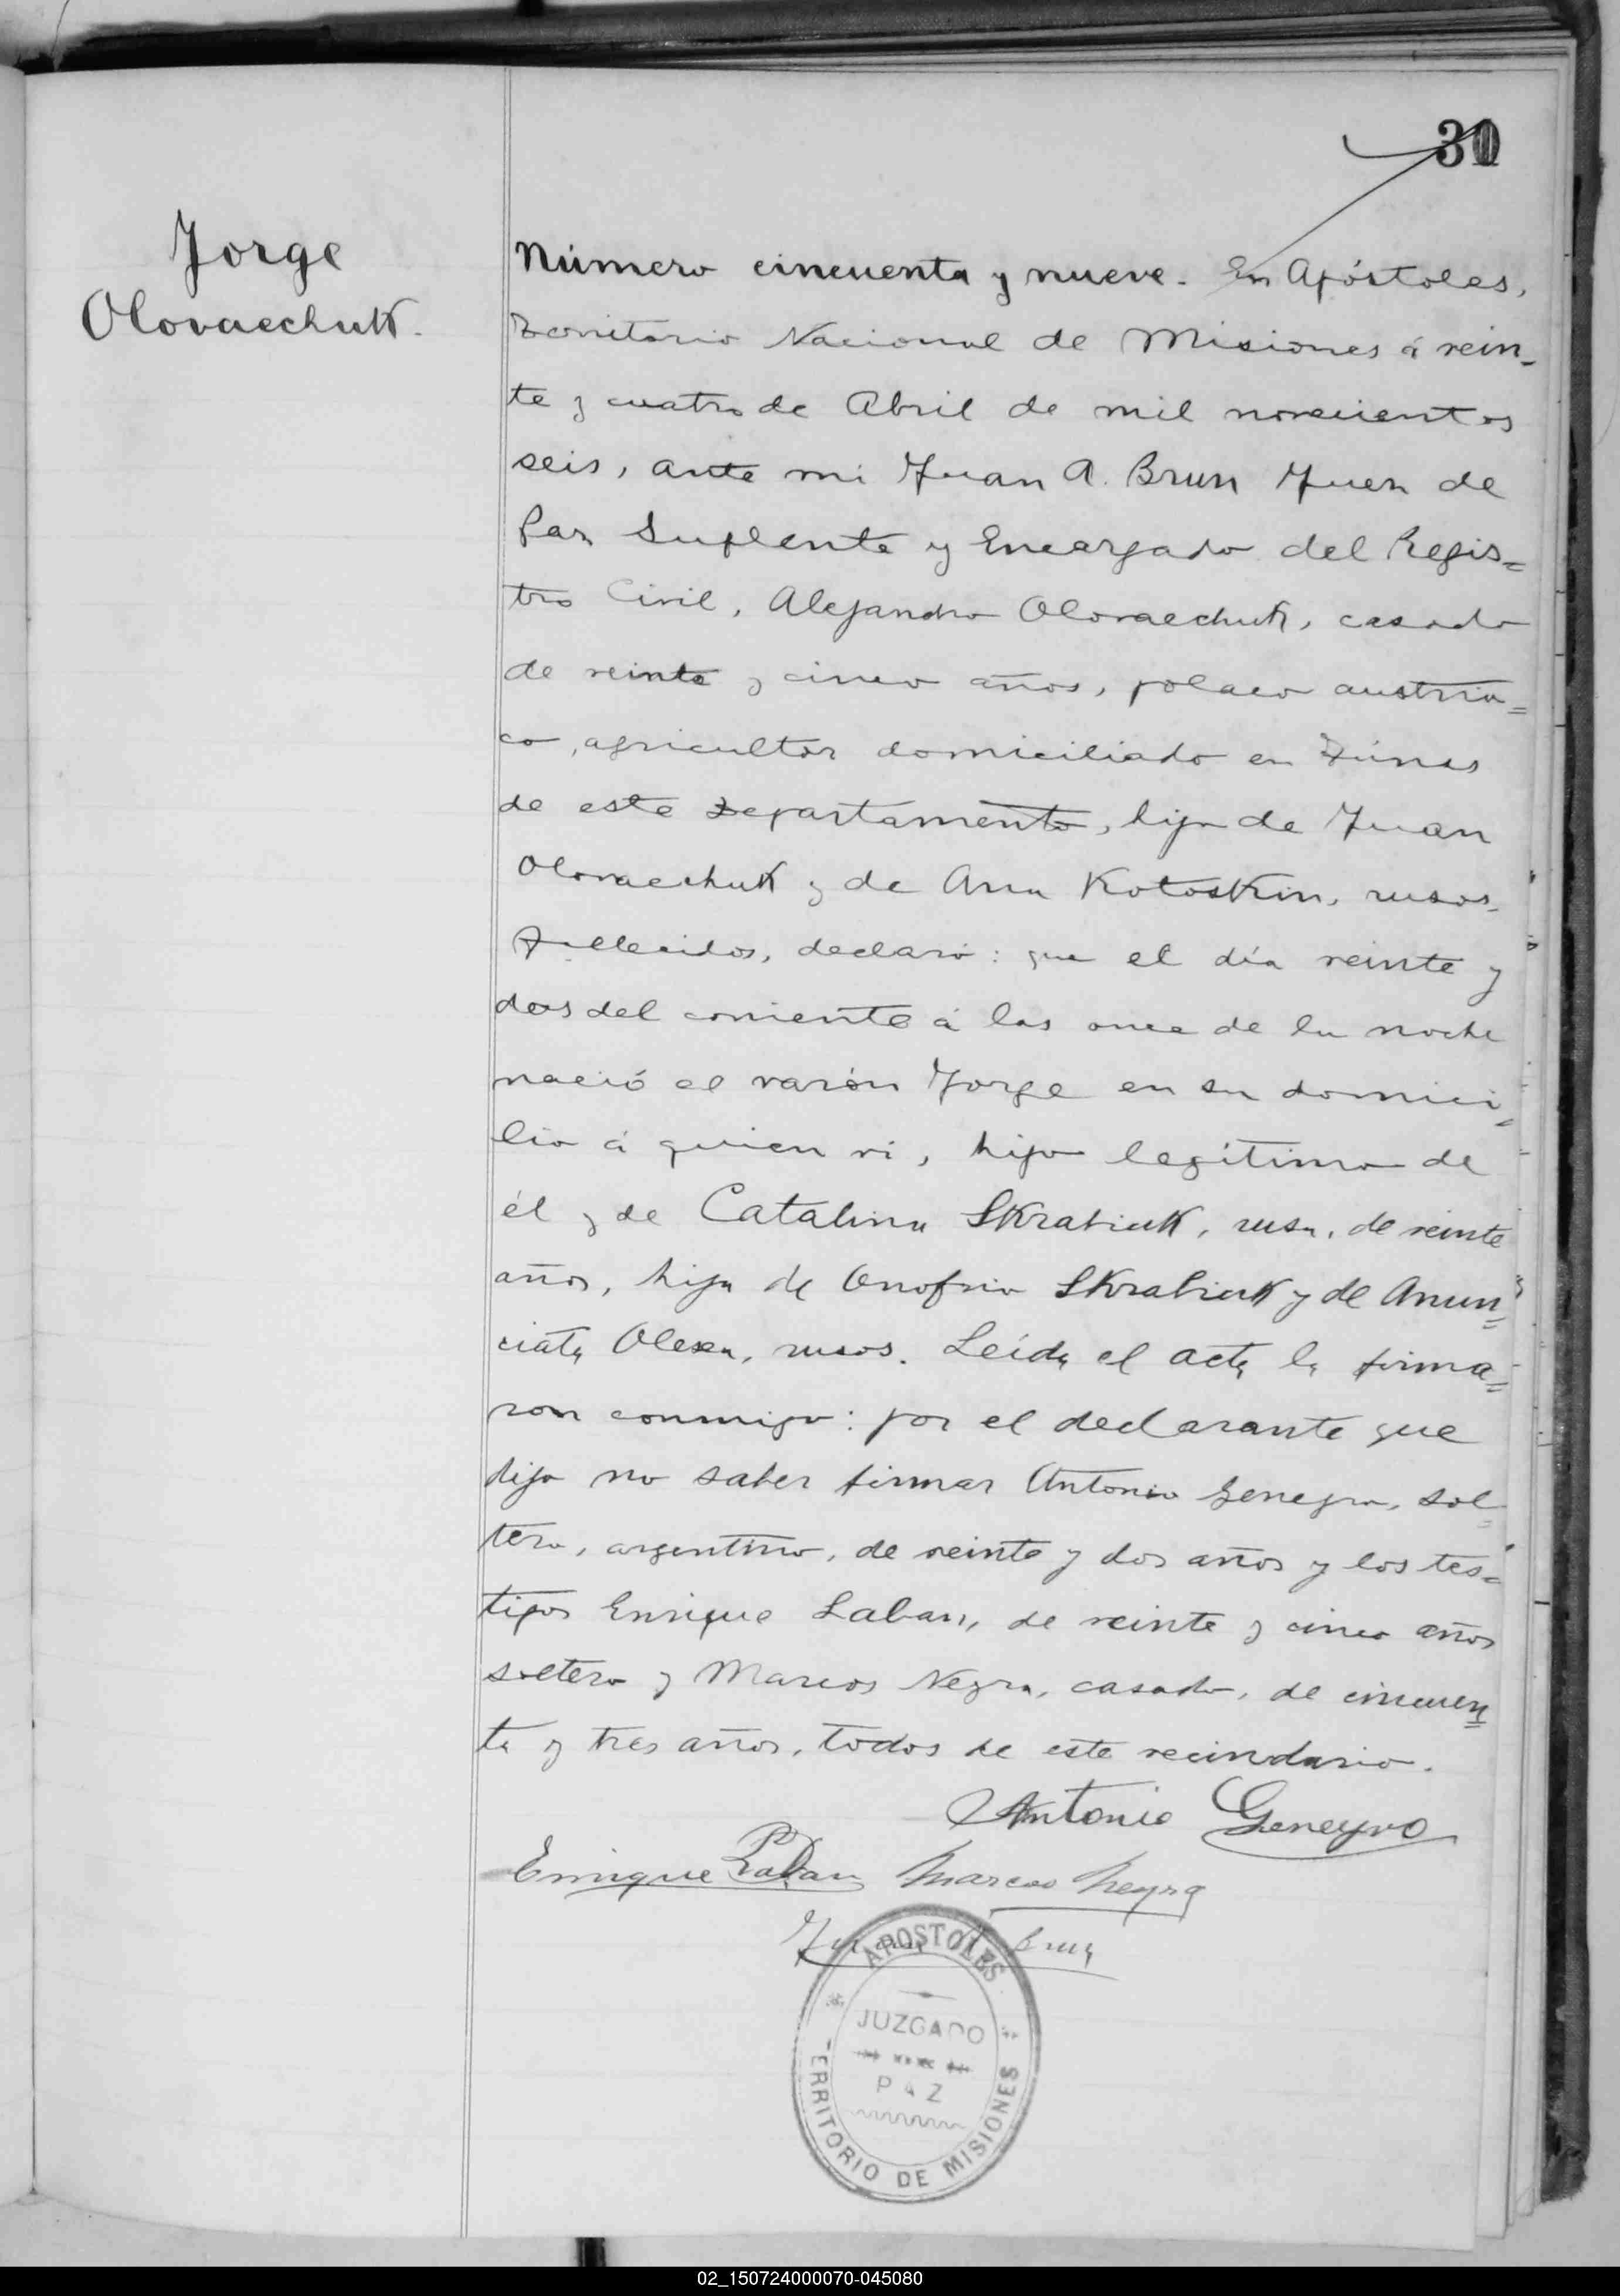 30
Jorge
Olovaechuk.
Número cincuenta y nueve. En Apóstoles,
Territorio Nacional de Misiones á vein-
te y cuatro de Abril de mil novecientos
seis, ante mi Juan A. Brun Juez de
Paz Suplente y Encargado del Regis=
tro Civil, Alejandro Olovaechuk, casado
de veinte y cinco años, polaco austria=
co, agricultor domiciliado en
de este Departamento, hijo de Juan
Olovaechuk y de Ana Kotoskin, rusos
fallecidos, declaró: que el día veinte y
dos del corriente á las once de la noche
nació el varón Jorge en su domici=
lio á quien ví, hijo legítimo de
él y de Catalina Skrabiuk, rusa, de veinte
años, hija de Onofrio Skrabiuk y de Anun=
ciata Olexa, rusos. Leída el acta la firma=
ron conmigo: por el declarante que
dijo no saber firmar Antonio Geneyro, sol=
tero, argentino, de veinte y dos años y los tes=
tigos Enrique Laban, de veinte y cinco años
soltero y Marcos Neyra, casado, de cincuen=
ta y tres años, todos de este vecindario.
Antonio Geneyro
Enrique Laban Marcos Neyra
Juan A Brun
APOSTOLES
JUZGADO
PAZ
TERRITORIO DE MISIONES
02_150724000070-045080